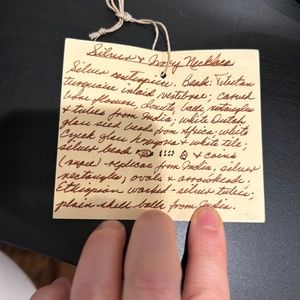 Silver & Ivory Necklace
Silver centerpiece. Beads: Tibetan
turquoise inlaid vertebrae; carved
bone flowers, donuts, balls, rectangles
& tubes from India; white Dutch
glass seed beads from Africa; white
Czech glass hexagons & white tile;
silver beads & coins
(rupee) replicas from India, silver
rectangles, ovals & arrowheads;
Ethiopian washed-silver tubes;
plain shell balls from India.